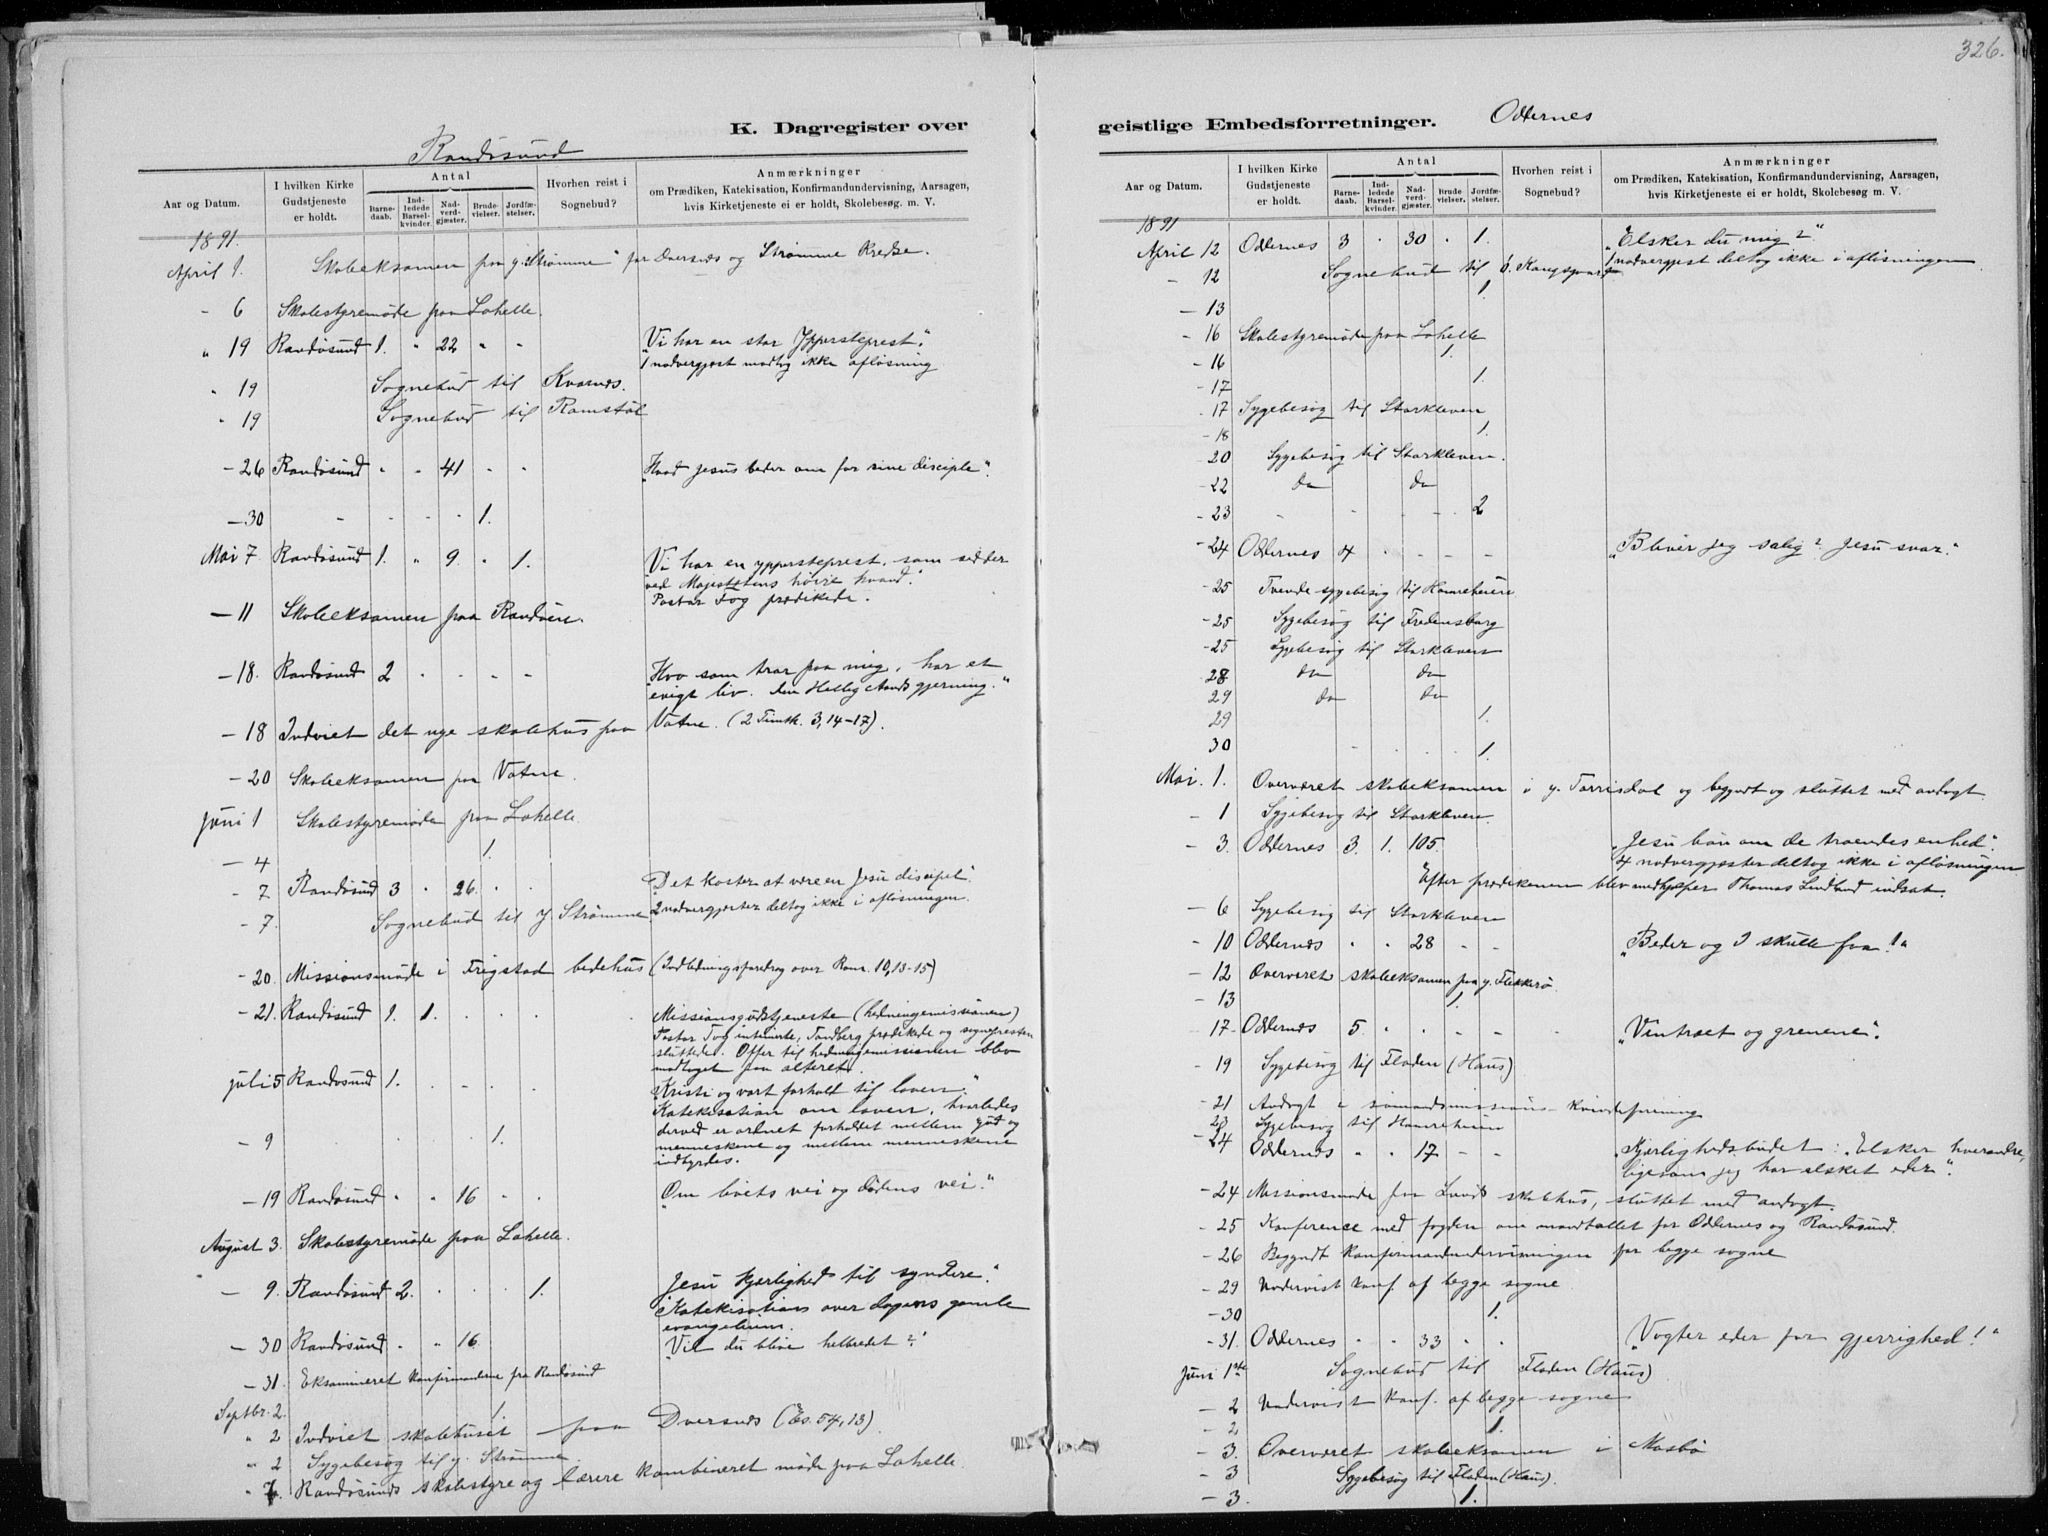 326.
K. Dagregister over
Randøsund
Aar og Datum.
I hvilken Kirke Gudstjeneste er holdt.
Antal
Barnedaab.
Indledede Barselkvinder.
Nadverdgjæster.
Brudevielser.
Jordfæstelser.
Hvorhen reist i Sognebud?
Anmærkninger
om Prædiken, Katekisation, Konfirmandundervisning, Aarsagen,
hvis Kirketjeneste ei er holdt, Skolebesøg. m. V.
1891.
April 1. Skoleeksamen paa y. Strømme for Dversnes og Strømme Kredse.
- 6 Skolestyremøde paa Lahelle.
" 19 Randøsund 1. " 22 " " "Vi har en stor Ypperstepræst."
1 nadvergjæst modtog ikke afløsning
" 19 Sognebud til Kvarnes.
" 19 Sognebud til Ramstøl
- 26 Randøsund " " 41 " " "Hvad Jesus beder om for sine disciple".
- 30 - - - - 1.
Mai 7 Randøsund 1. " 9. " 1. Vi har en ypperstepræst, som sidder
ved Majestætens høire haand."
Pastor Fog prædikede.
- 11 Skoleeksamen paa Randøen.
- 18. Randøsund 2 . . . . Hvo som tror paa mig, har et
evigt liv. Den Hellig Aands gjerning."
- 18 Indviet det nye skolehus paa Vatne. (2 Timoth. 3, 14-17).
- 20 Skoleeksamen paa Vatne.
Juni 1 Skolestyremøde paa Lahelle.
- 4 1.
- 7 Randøsund 3 " 26. . . "Det koster at være en Jesu discipel".
- 7. Sognebud til y Strømme 2 nadvergjæster deltog ikke i afløsningen.
- 20. Missionsmøde i Frigstad bedehus (Indledningsforedrag over Rom. 10, 13-15)
- 21. Randøsund 1. 1. . . . Missionsgudstjeneste (hedningemissionen)
Pastor Fog intimerte, Tandberg prædikede og sognepresten
sluttede. Offer til hedningemissionen blev
modtaget paa alteret.
Juli 5 Randøsund 1. . . . . "Kristi og vort forhold til loven."
Katekisation om loven, hvorledes
derved er ordnet forholdet mellem Gud og
- 9 . . . . 1. menneskene og mellem menneskene
indbyrdes.
- 19 Randøsund " " 16 " . "Om livets vei og dødens vei."
August 3. Skolestyremøde paa Lahelle.
- 9. Randøsund 2. . . . 1. Jesu kjærlighed til syndere".
Katekisation over dagens gamle
evangelium.
- 30 Randøsund . " 16 "Vil du blive helbredet?"
- 31. Eksamineret konfirmanderne fra Randøsund
Septbr. 2. 1.
" 2 Indviet skolehuset paa Dversnes (Es. 54, 13).
" 2 Sygebesøg til y. Strømme
" 7. Randøsunds skolestyre og lærere kombineret møde paa Lahelle.
geistlige Embedsforretninger.
Oddernes
Aar og Datum.
I hvilken Kirke Gudstjeneste er holdt.
Antal
Barnedaab.
Indledede Barselkvinder.
Nadverdgjæster.
Brudevielser.
Jordfæstelser.
Hvorhen reist i Sognebud?
Anmærkninger
om Prædiken, Katekisation, Konfirmandundervisning, Aarsagen,
hvis Kirketjeneste ei er holdt, Skolebesøg m. V.
1891
April 12 Oddernes 3 . 30 . 1. "Elsker du mig?"
1 nadvergjæst deltog ikke i afløsningen
- 12 Sognebud til ø. Kongsgaard
- 13 1.
- 16 Skolestyremøde paa Lahelle
- 16 1.
- 17 1.
- 17 Sygebesøg til Storkleven
- 18 1.
- 20 Sygebesøg til Storkleven.
- 22 do do
- 23 - - - - 2
- 24 Oddernes 4 . - - - "Bliver jeg salig? Jesu svar."
- 25 Tvende sygebesøg til Hamreheien
- 25 Sygebesøg til Fredensborg
- 25 Sygebesøg til Storkleven
- 28 do do
29 do do
29 1.
30 1.
Mai. 1. Overværet skoleeksamen i y. Torrisdal og begyndt og sluttet med andagt.
- 1 Sygebesøg til Storkleven.
- 3. Oddernes 3. 1. 105. "Jesu bøn om de troendes enhed".
4 nadvergjæster deltog ikke i afløsningen
Efter prædikenen blev medhjælper Thomas Lindlund indsat.
- 6 Sygebesøg til Storkleven
- 10 Oddernes " " 28 - - "Beder og I skulle faa!"
- 12 Overværet skoleeksamen paa y. Flekkerø
- 13 1.
- 17 Oddernes 5 " " - - "Vintræet og grenene".
- 19 Sygebesøg til Floden (Haus)
- 21 Andagt i sømandsmissions-kvindeforening
23 Sygebesøg til Hamreheien
- 24 Oddernes " " 17 - - "Kjærlighedsbudet: "Elsker hverandre,
ligesom jeg har elsket eder".
- 24 Missionsmøde paa Lunds skolehus, sluttet med andagt.
- 25 Konference med fogden om mandtallet for Oddernes og Randøsund.
- 26 Begyndt konfirmandundervisningen for begge sogne
- 29 Undervist konf. af begge sogne
- 30 1.
- 31. Oddernes " " 33 " " "Vogter eder for gjerrighed!"
Juni 1ste Sognebud til Floden (Haus)
- 2 Undervist konf. af begge sogne
- 2 1.
- 3. Overværet skoleeksamen i Mosby
- 3 Sygebesøg til Floden (Haus).
- 3. 1.